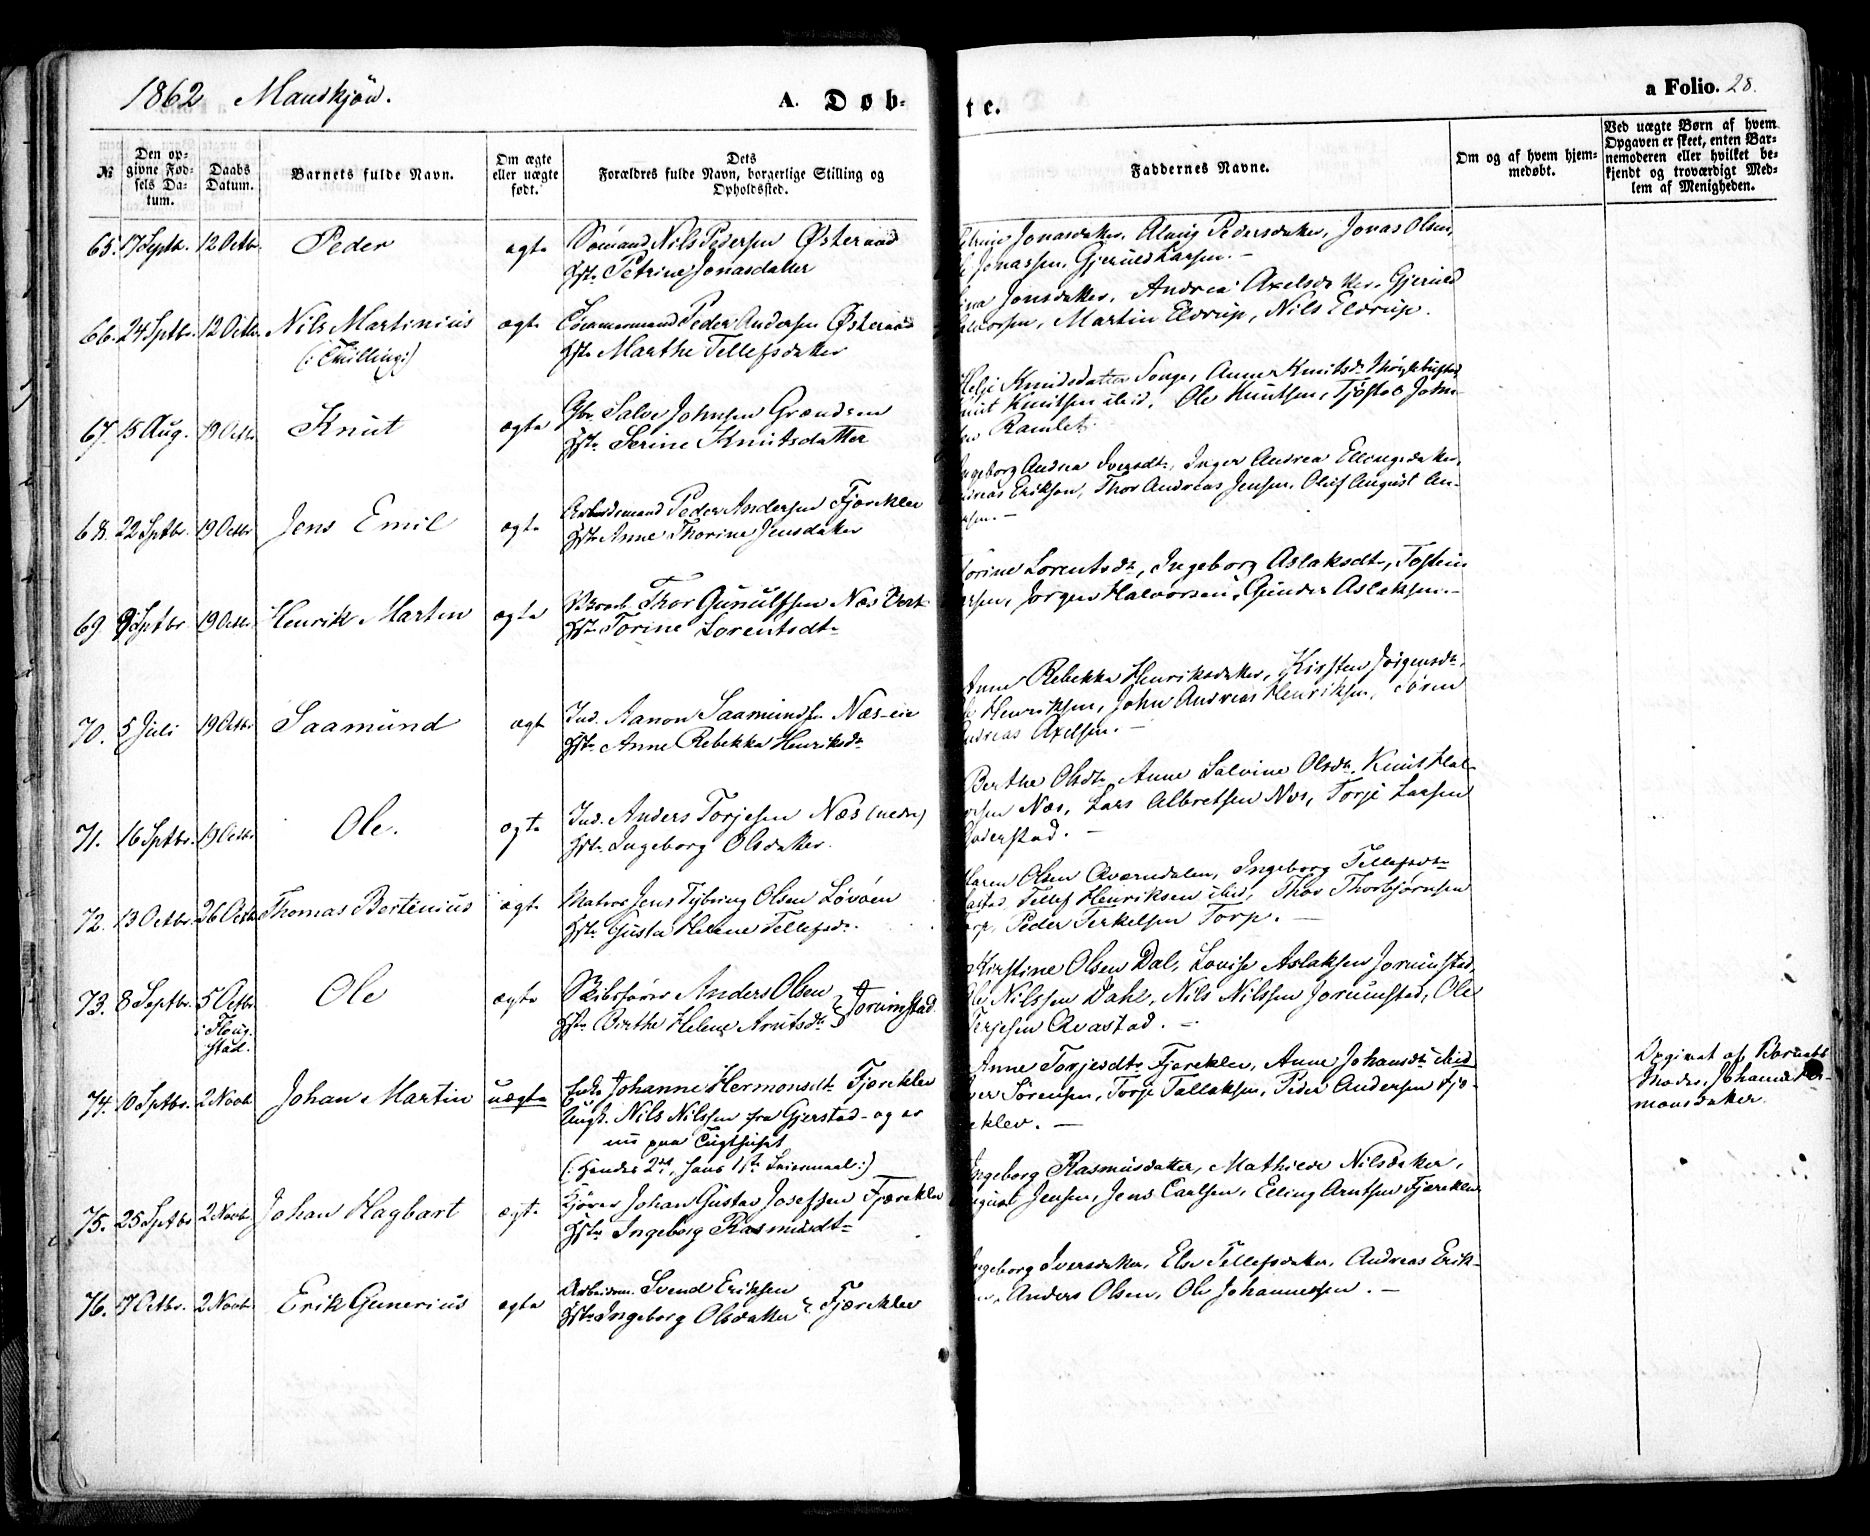 1862 Mandkjön.
A. Døb-
te.
a Folio. 28.
№
Den op-
givne Fød-
sels Da-
tum.
Daabs
Datum.
Barnets fulde Navn.
Om ægte
eller uægte
født.
Dets
Forældres fulde Navn, borgerlige Stilling og
Opholdssted.
Faddernes Navne.
Om og af hvem hjem-
medøbt.
Ved uægte Børn af hvem
Opgaven er skeet, enten Bar-
nemoderen eller hvilket be-
kjendt og troværdigt Med-
lem af Menigheden.
65. 17 Septbr. 12 Octbr. Peder ægte Sömand Nils Pedersen Østeraad
Hst. Petrine Jonasdatter
Jonasdatter, Pedersdatter, Jonas Olsen,
Jonassen, Gjeruld Larsen. —
66. 24 Septbr. 12 Octbr. Nils Martinius ægte Tömmermand Peder Andersen Østeraad
(: Tvilling :)
Hst. Marthe Tellefsdatter
Jonsdatter, Andrea Axelsdatter, Gjeruld
Martin Eldrup, Nils Eldrup.
67. 15 Aug. 19 Octbr. Knut ægte Gbr. Salve Johnsen Grændsen
Hst. Serine Knutsdatter
Helje Knudsdatter Songe, Anne Knutsd.
Knutsen ibid, Ole Knutsen, John-
Ramlet.
68. 22 Sptbr. 19 Octbr. Jens Emil ægte Arbeidsmand Peder Andersen Fjæreklev
Hst. Anne Thorine Jensdatter
Ingeborg Andrea Iversdt., Inger Andrea Ellingsdatter,
Eriksen, Thor Andreas Jensen, Oluf August An-
69 9 Sptbr 19 Octbr. Henrik Martin ægte Thor Gunulfsen Næs Verk
Hst. Torine Lorentsdt.
Torine Lorentsdt., Ingeborg Aslaksdt., Tostein
Jørgen Halvorsen, Gunder Aslaksen. —
70. 5 Juli 19 Octbr. Saamund ægte Ind. Aanon Saamundsen Næs-eie
Hst. Anne Rebekka Henriksdt.
Anne Rebekka Henriksdatter, Kirsten Jörgensdt.,
Henriksen, John Andreas Henriksen, Sören
Andreas Axelsen. —
71. 16 Sptbr. 19 Octbr. Ole. ægte Ind. Anders Torjesen Næs (nedre)
Hst. Ingeborg Olsdatter.
Berthe Olsdt., Anne Salvine Olsdt., Knut Hal-
vorsen Næs, Lars Albretsen Næs, Torje Larsen
72. 13 Octbr. 26 Octbr. Thomas Bertinius ægte Matros Jens Tybring Olsen Lövöen
Hst. Gusta Helene Tellefsdt.
Maren Olsen Qværndalen, Ingeborg Tellefsdt.
Tellef Henriksen ibid, Thor Thorbjørnsen
Torp, Peder Terkelsen Torp. —
73. 8 Septbr. 5 Octbr. Ole ægte Skibsfører Anders Olsen
i Flougstad. Hst. Birthe Helene Arntsdt. } Jorunstad
Kirstine Olsen Dal, Lovise Aslaksen Jorunstad,
Ole Nilssen Dahl, Nils Nilssen Jorunstad, Ole
Terjesen Qvastad. —
74. 10 Sptbr. 2 Novbr. Johan Martin uægte Enke Johanne Hermonsdt. Fjæreklev
Ungk. Nils Nilssen fra Gjerstad - og er
nu paa Tugthuset
(: Hendes 2det, hans 1ste Leiermaal :)
Anne Torjesdt. Fjæreklev, Anne Johansdt. ibid
Sörensen, Torje Tallaksen, Peder Andersen Fjæ-
reklev. —
Opgivet af Barnets
Moder, Johanne Her-
monsdatter.
75. 25 Sptbr. 2 Novbr. Johan Hagbart ægte Johan Gustav Josefsen Fjæreklev
Hst. Ingeborg Rasmusdt.
Ingeborg Rasmusdatter, Mathilde Nilsdatter,
August Jensen, Jens Carlsen, Elling Arntsen Fjæreklev
76. 7 Octbr. 2 Novbr. Erik Gunerius ægte Arbeidsm. Svend Eriksen
Hst. Ingeborg Olsdatter } Fjæreklev
Ingeborg Iversdatter, Else Tellefsdatter, Andreas Erik-
sen, Anders Olsen, Ole Johannessen. —